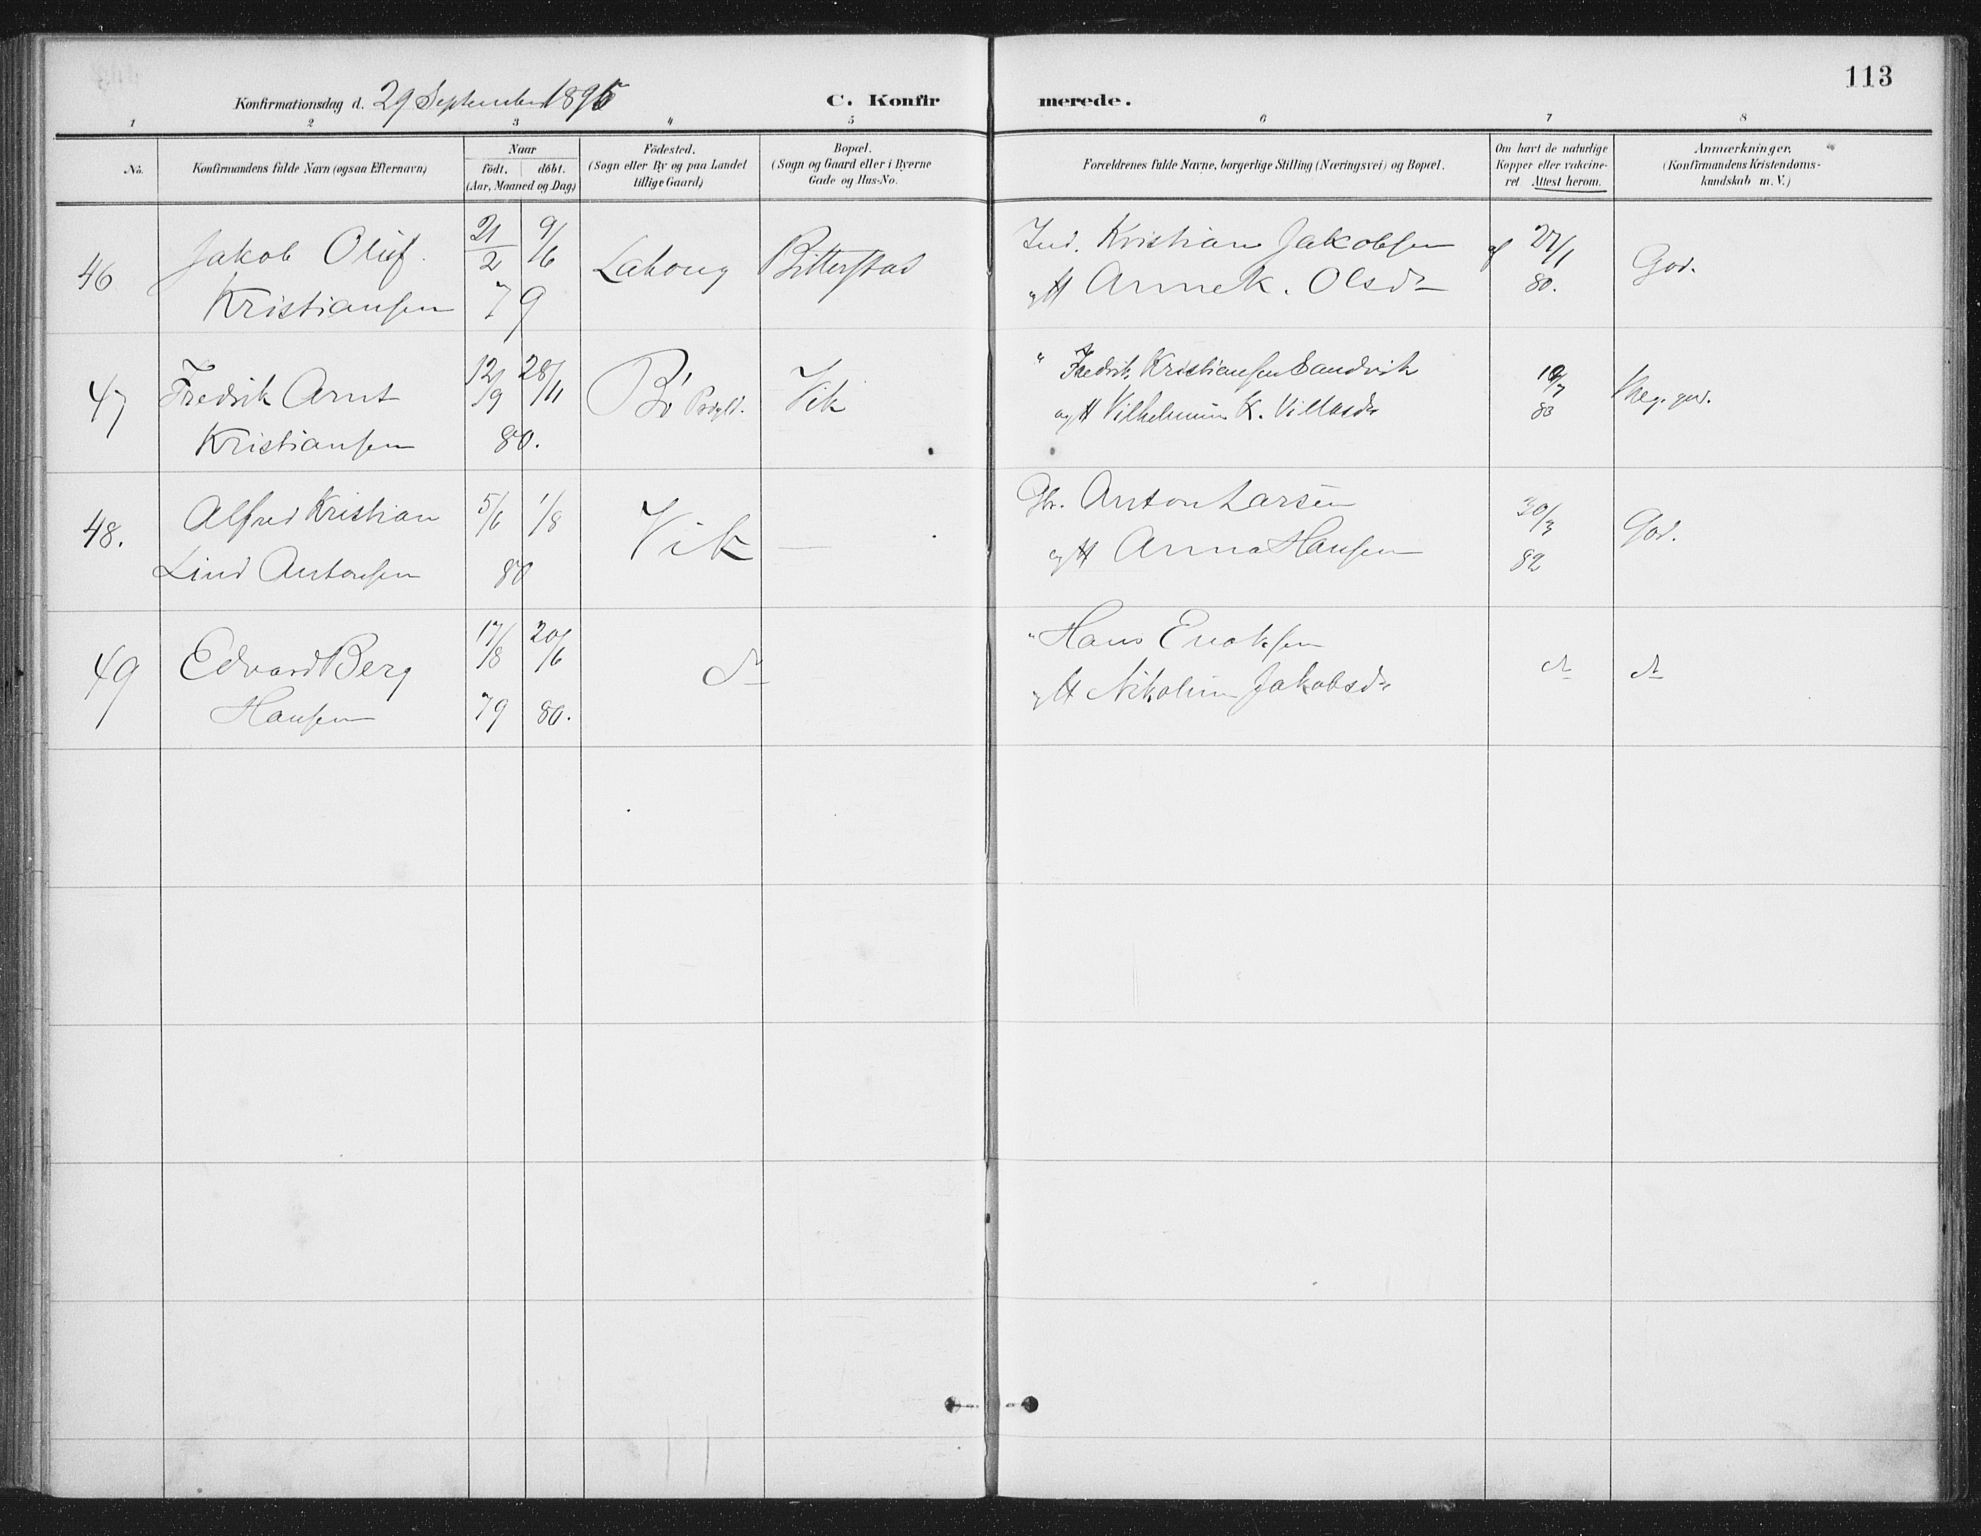 113
Konfirmationsdag d. 29 September 1895 C. Konfirmerede.
1 2 3 4 5 6 7 8
No. Konfirmandens fulde Navn (ogsaa Efternavn) Naar födt, döbt. (Aar, Maaned og Dag) Födested. (Sogn eller By og paa Landet tillige Gaard) Bopæl. (Sogn og Gaard eller i Byerne Gade og Hus-No. Forældrenes fulde Navne, borgerlige Stilling (Næringsvei) og Bopæl. Om havt de naturlige Kopper eller vakcineret Attest herom. Anmærkninger, (Konfirmandens Kristendomskundskab m. V.)
46 Jakob Oluf. 21/2 9/6 Bitterstad Ind. Kristian Jakobsen af 27/1 God.
Kristiansen 79 og H Anne K. Olsdr 80.
47 Fredrik Arnt 12/9 28/11 Bö Prgld. Vik " Fredrik Kristiansen Sandvik /7 Meg. god.
Kristiansen 80. og H Vilhelmine K. Villasdr 83
48. Alfred Kristian 5/6 1/8 Vik — Gbr. Anton Larsen 30/3 God.
Lind Antonsen 80 og H Anna Hansen 82
49 Edvard Berg 17/8 20/6 dr " Hans Enoksen dr dr
Hansen 79 80. og H Nikoline Jakobsdr